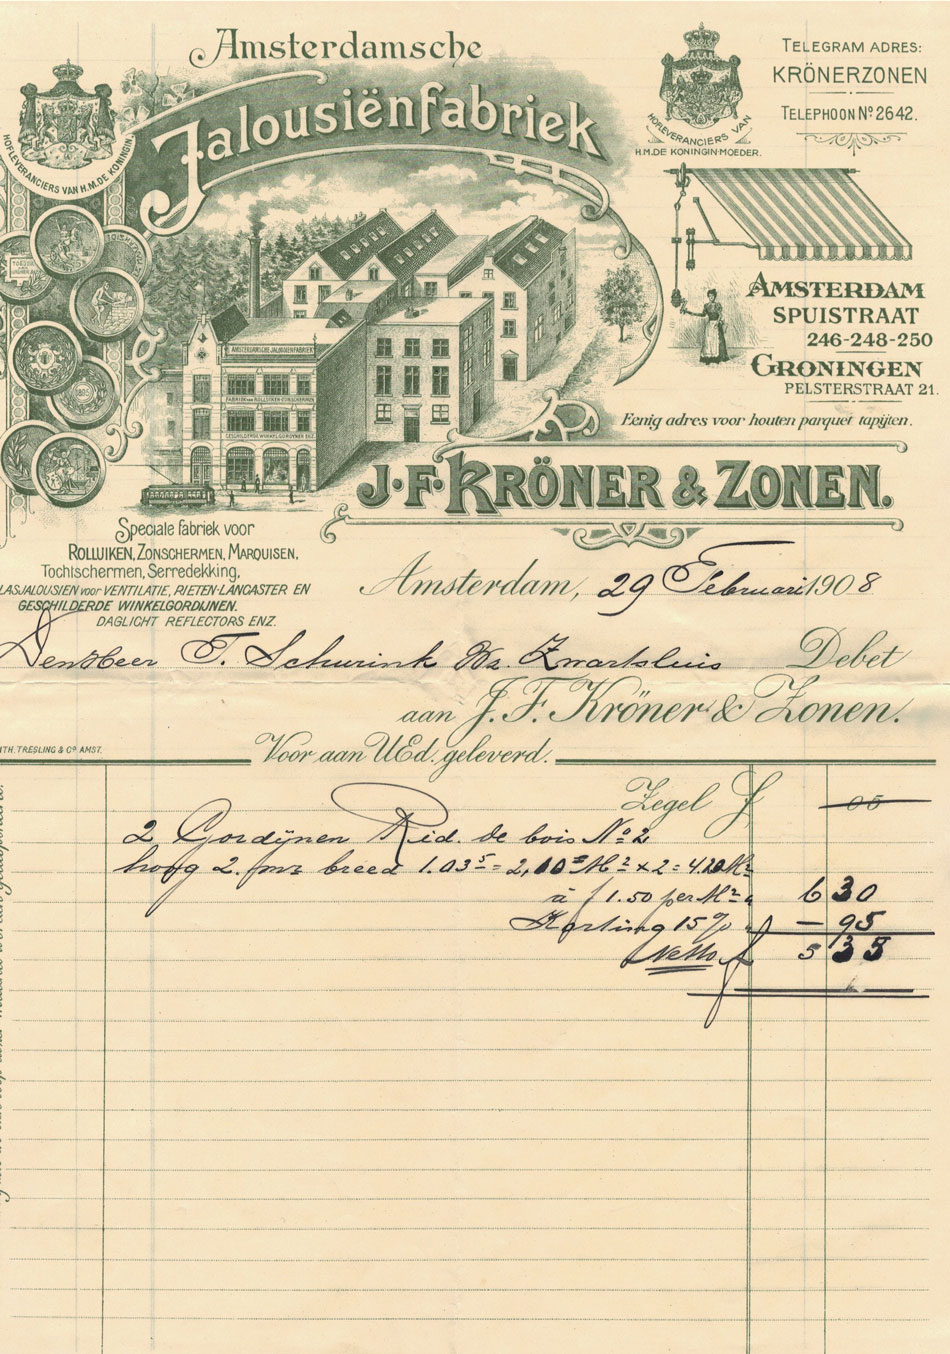 Amsterdamsche
Jalousiënfabriek
HOFLEVERANCIERS VAN H.M. DE KONINGIN
HOFLEVERANCIERS VAN
H.M. DE KONINGIN-MOEDER.
TELEGRAM ADRES:
KRÖNERZONEN
TELEPHOON Nº 2642.
AMSTERDAM
SPUISTRAAT
246-248-250
GRONINGEN
PELSTERSTRAAT 21.
Eenig adres voor houten parquet tapijten.
AMSTERDAMSCHE JALOUSIENFABRIEK
FABRIEK VAN ROLLUIKEN-ZONSCHERMEN
GESCHILDERDE WINKELGORDIJNEN ENZ.
J.F. KRÖNER & ZONEN.
Speciale fabriek voor
ROLLUIKEN, ZONSCHERMEN, MARQUISEN,
Tochtschermen, Serredekking,
LASJALOUSIEN voor VENTILATIE, RIETEN-LANCASTER EN
GESCHILDERDE WINKELGORDIJNEN.
DAGLICHT REFLECTORS ENZ.
Amsterdam, 29 Februari 1908
Den Heer T. Schurink Wz. Zwartsluis Debet
aan J. F. Kröner & Zonen.
ITH. TRESLING & Cº AMST.
Voor aan UEd. geleverd.
Zegel f 05
2 Gordijnen Rid. de bois Nº 2
hoog 2. breed 1.03⁵ = 2,10⁵ M² x 2 = 4.20 M²
à f 1.50 per M² " 6 30
Korting 15% " — 95
Netto f 5 35